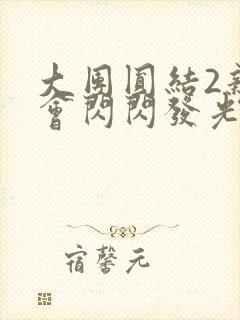 大團圓結2新
會閃閃發光
宿馨元